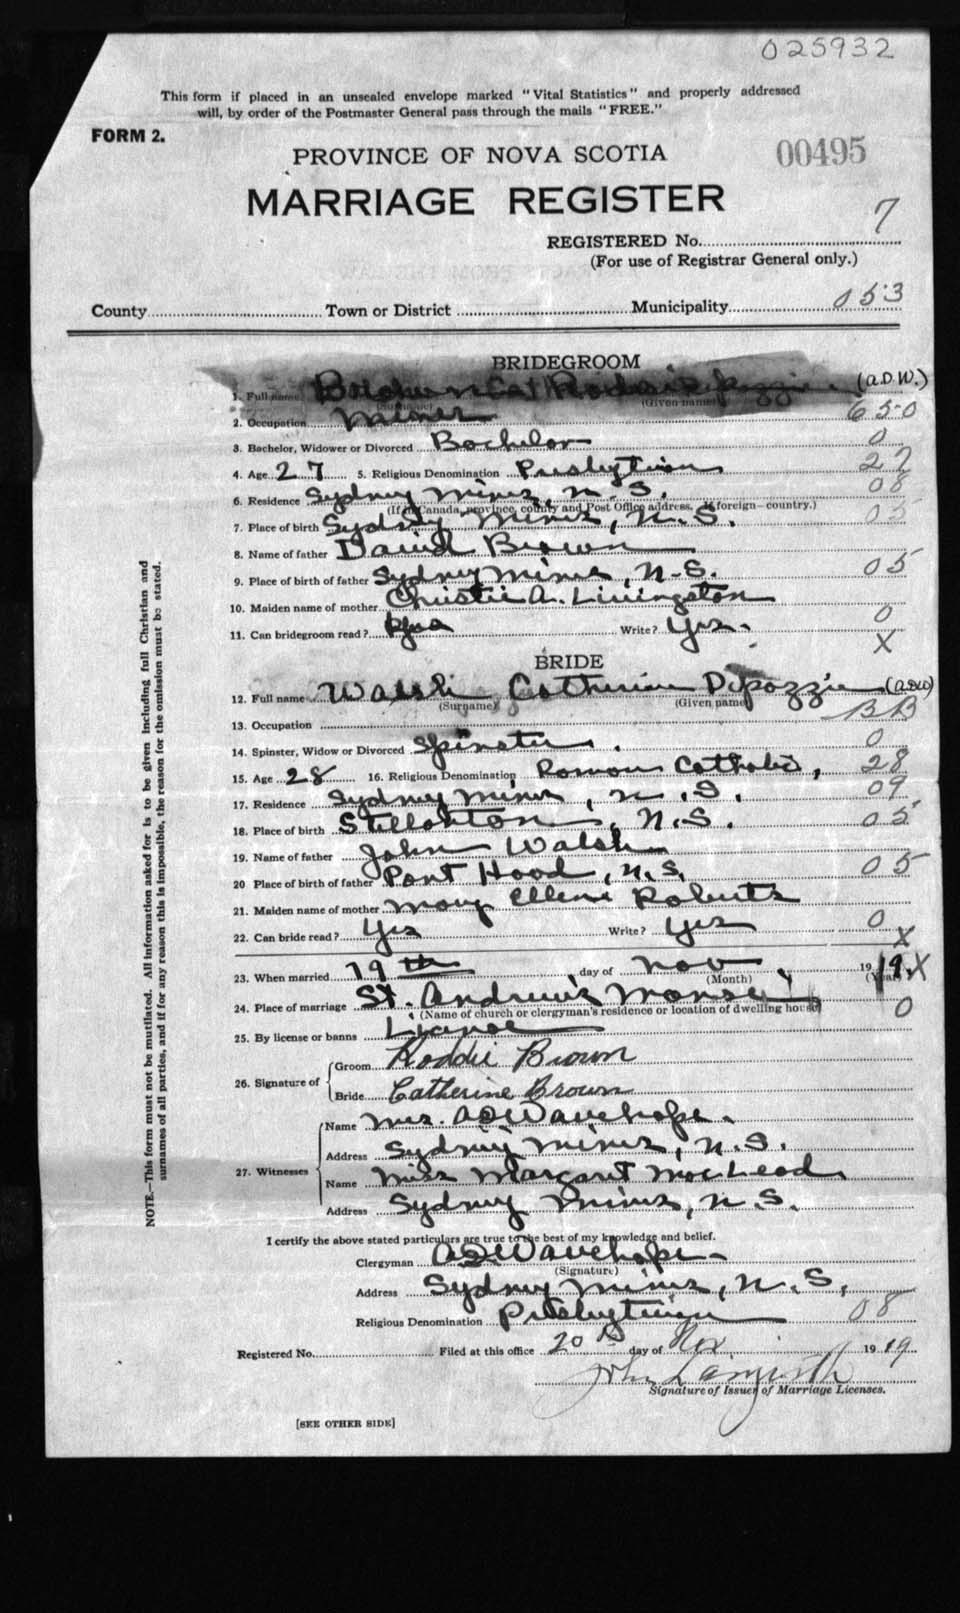 025932
This form if placed in an unsealed envelope marked "Vital Statistics" and properly addressed
will, by order of the Postmaster General pass through the mails "FREE."
FORM 2.
PROVINCE OF NOVA SCOTIA
00495
MARRIAGE REGISTER
7
REGISTERED No.
(For use of Registrar General only.)
County Town or District Municipality 053
BRIDEGROOM
1. Full name Brown (A.D.W.)
(Surname) (Given name)
2. Occupation Miner 650
3. Bachelor, Widower or Divorced Bachelor 0
4. Age 27 5. Religious Denomination Presbyterian 27
6. Residence Sydney Mines, N.S. 08
(If in Canada, province, county and Post Office address. If foreign—country.)
7. Place of birth Sydney Mines, N.S. 05
8. Name of father David Brown
9. Place of birth of father Sydney Mines, N.S. 05
10. Maiden name of mother Christie A. Livingston
11. Can bridegroom read? Yes Write? Yes. 0
X
BRIDE
12. Full name Walsh Catherine Depozzie (A.D.W)
(Surname) (Given name)
13. Occupation BB
14. Spinster, Widow or Divorced Spinster. 0
15. Age 28 16. Religious Denomination Roman Catholic, 28
17. Residence Sydney Mines, N.S. 09
18. Place of birth Stellarton, N.S. 05
19. Name of father John Walsh
20 Place of birth of father Port Hood, N.S. 05
21. Maiden name of mother Mary Ellen Roberts
22. Can bride read? Yes Write? Yes 0
X
23. When married 19th day of Nov 1919. X
(Month) (Year)
24. Place of marriage St. Andrew's Manse,
(Name of church or clergyman's residence or location of dwelling house) 0
25. By license or banns License
26. Signature of
Groom Roddie Brown
Bride Catherine Brown
27. Witnesses
Name Mrs. A D Wauchope.
Address Sydney Mines, N.S.
Name Miss Margaret MacLeod
Address Sydney Mines, N.S.
I certify the above stated particulars are true to the best of my knowledge and belief.
Clergyman A D Wauchope
(Signature)
Address Sydney Mines, N.S.
Religious Denomination Presbyterian 08
Registered No. Filed at this office 20th day of Nov. 1919
John
Signature of Issuer of Marriage Licenses.
[SEE OTHER SIDE]
NOTE.—This form must not be mutilated. All information asked for is to be given including full Christian and
surnames of all parties, and if for any reason this is impossible, the reason for the omission must be stated.